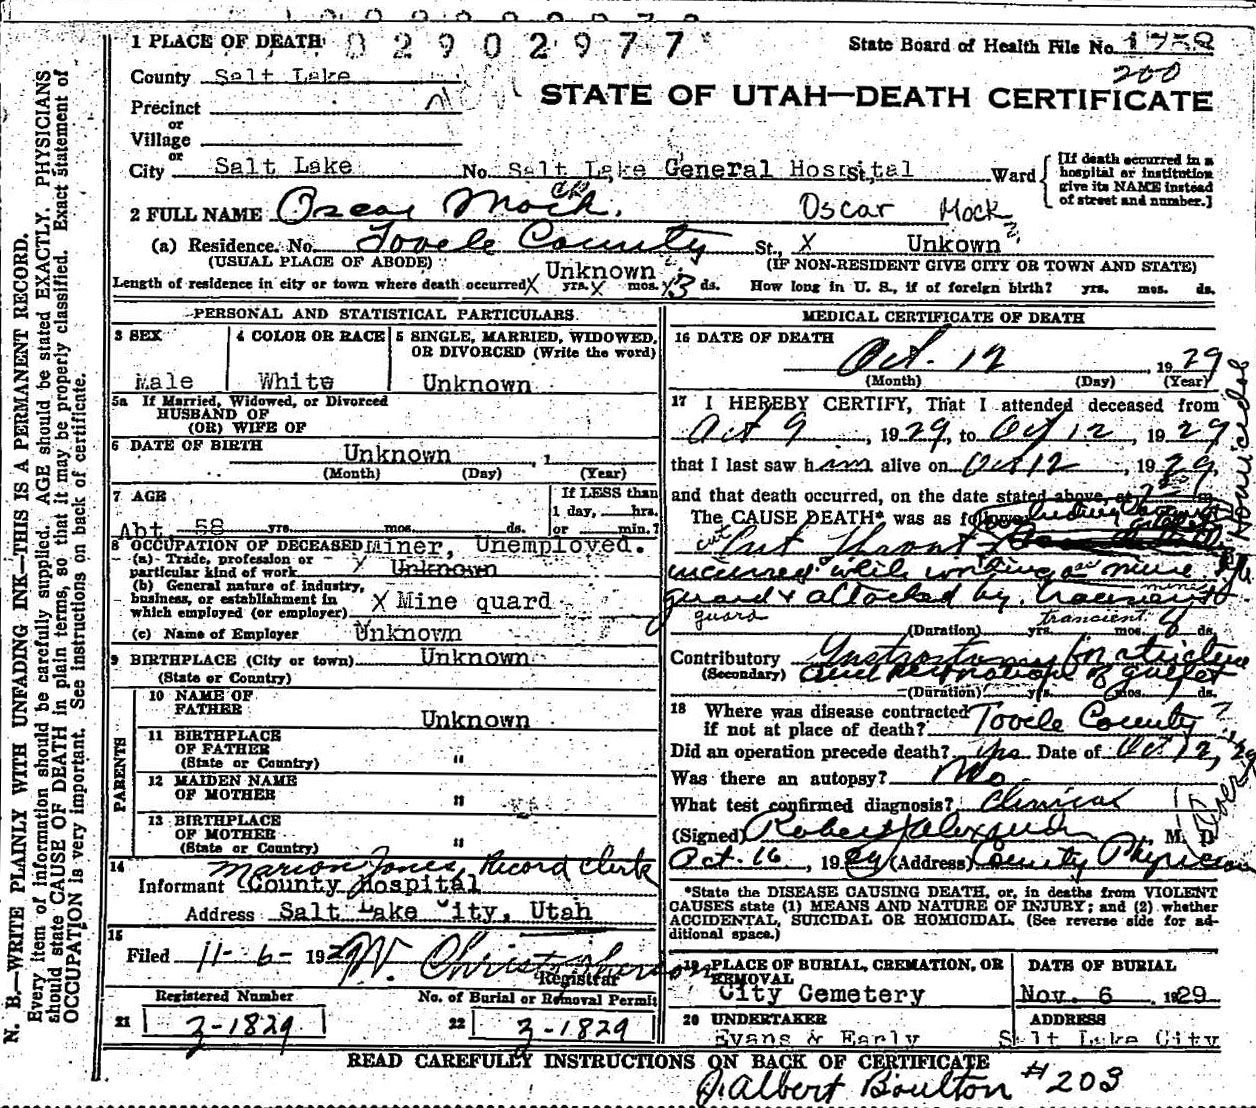 1 PLACE OF DEATH 02902977
State Board of Health File No. 1758
200
County Salt Lake
STATE OF UTAH—DEATH CERTIFICATE
Precinct
or
Village
or
City Salt Lake No. Salt Lake General Hospital St., Ward
[If death occurred in a hospital or institution give its NAME instead of street and number.]
2 FULL NAME Oscar Mock. Oscar Mock
(a) Residence. No. Tooele County St., X Unkown
(USUAL PLACE OF ABODE) (IF NON-RESIDENT GIVE CITY OR TOWN AND STATE)
Unknown
Length of residence in city or town where death occurred X yrs. X mos. X3 ds. How long in U. S., if of foreign birth? yrs. mos. ds.
PERSONAL AND STATISTICAL PARTICULARS
3 SEX
Male
4 COLOR OR RACE
White
5 SINGLE, MARRIED, WIDOWED, OR DIVORCED (Write the word)
Unknown
5a If Married, Widowed, or Divorced
HUSBAND OF
(OR) WIFE OF
6 DATE OF BIRTH Unknown , 1
(Month) (Day) (Year)
7 AGE
Abt 58 yrs. mos. ds.
If LESS than
1 day, hrs.
or min.?
8 OCCUPATION OF DECEASED Miner, Unemployed.
(a) Trade, profession or
particular kind of work X Unknown
(b) General nature of industry,
business, or establishment in
which employed (or employer) X Mine guard
(c) Name of Employer Unknown
9 BIRTHPLACE (City or town) Unknown
(State or Country)
PARENTS
10 NAME OF
FATHER Unknown
11 BIRTHPLACE
OF FATHER
(State or Country) "
12 MAIDEN NAME
OF MOTHER "
13 BIRTHPLACE
OF MOTHER
(State or Country) "
14 Marion Jones, Record Clerk
Informant County Hospital
Address Salt Lake City, Utah
15
Filed 11-6-192 W. Christopherson
Registrar
Registered Number
21 3-1829
No. of Burial or Removal Permit
22 3-1829
MEDICAL CERTIFICATE OF DEATH
16 DATE OF DEATH
Oct. 12, 1929
(Month) (Day) (Year)
17 I HEREBY CERTIFY, That I attended deceased from
Oct 9, 1929, to Oct 12, 1929
that I last saw him alive on Oct 12, 1929,
and that death occurred, on the date stated above, at
The CAUSE DEATH* was as follows
cut
Cut Throat
incurred while working as mine
guard & attacked by
guard transient
(Duration) yrs. mos. ds.
Homicidal
Contributory Gastrostomy for stricture
(Secondary) and of gullet
(Duration) yrs. mos. ds.
18 Where was disease contracted
if not at place of death? Tooele County ?
Did an operation precede death? yes Date of Oct 12, 29
Was there an autopsy? No
What test confirmed diagnosis? Clinical
(Signed) Robert Alexander, M. D.
Oct. 16, 1929 (Address) County Physician
*State the DISEASE CAUSING DEATH, or, in deaths from VIOLENT
CAUSES state (1) MEANS AND NATURE OF INJURY; and (2) whether
ACCIDENTAL, SUICIDAL OR HOMICIDAL. (See reverse side for ad-
ditional space.)
19 PLACE OF BURIAL, CREMATION, OR
REMOVAL
City Cemetery
DATE OF BURIAL
Nov. 6 1929
20 UNDERTAKER
Evans & Early
ADDRESS
Salt Lake City
READ CAREFULLY INSTRUCTIONS ON BACK OF CERTIFICATE
J. Albert Boulton #203
N. B.—WRITE PLAINLY WITH UNFADING INK—THIS IS A PERMANENT RECORD.
Every item of information should be carefully supplied. AGE should be stated EXACTLY. PHYSICIANS
should state CAUSE OF DEATH in plain terms, so that it may be properly classified. Exact statement of
OCCUPATION is very important. See instructions on back of certificate.